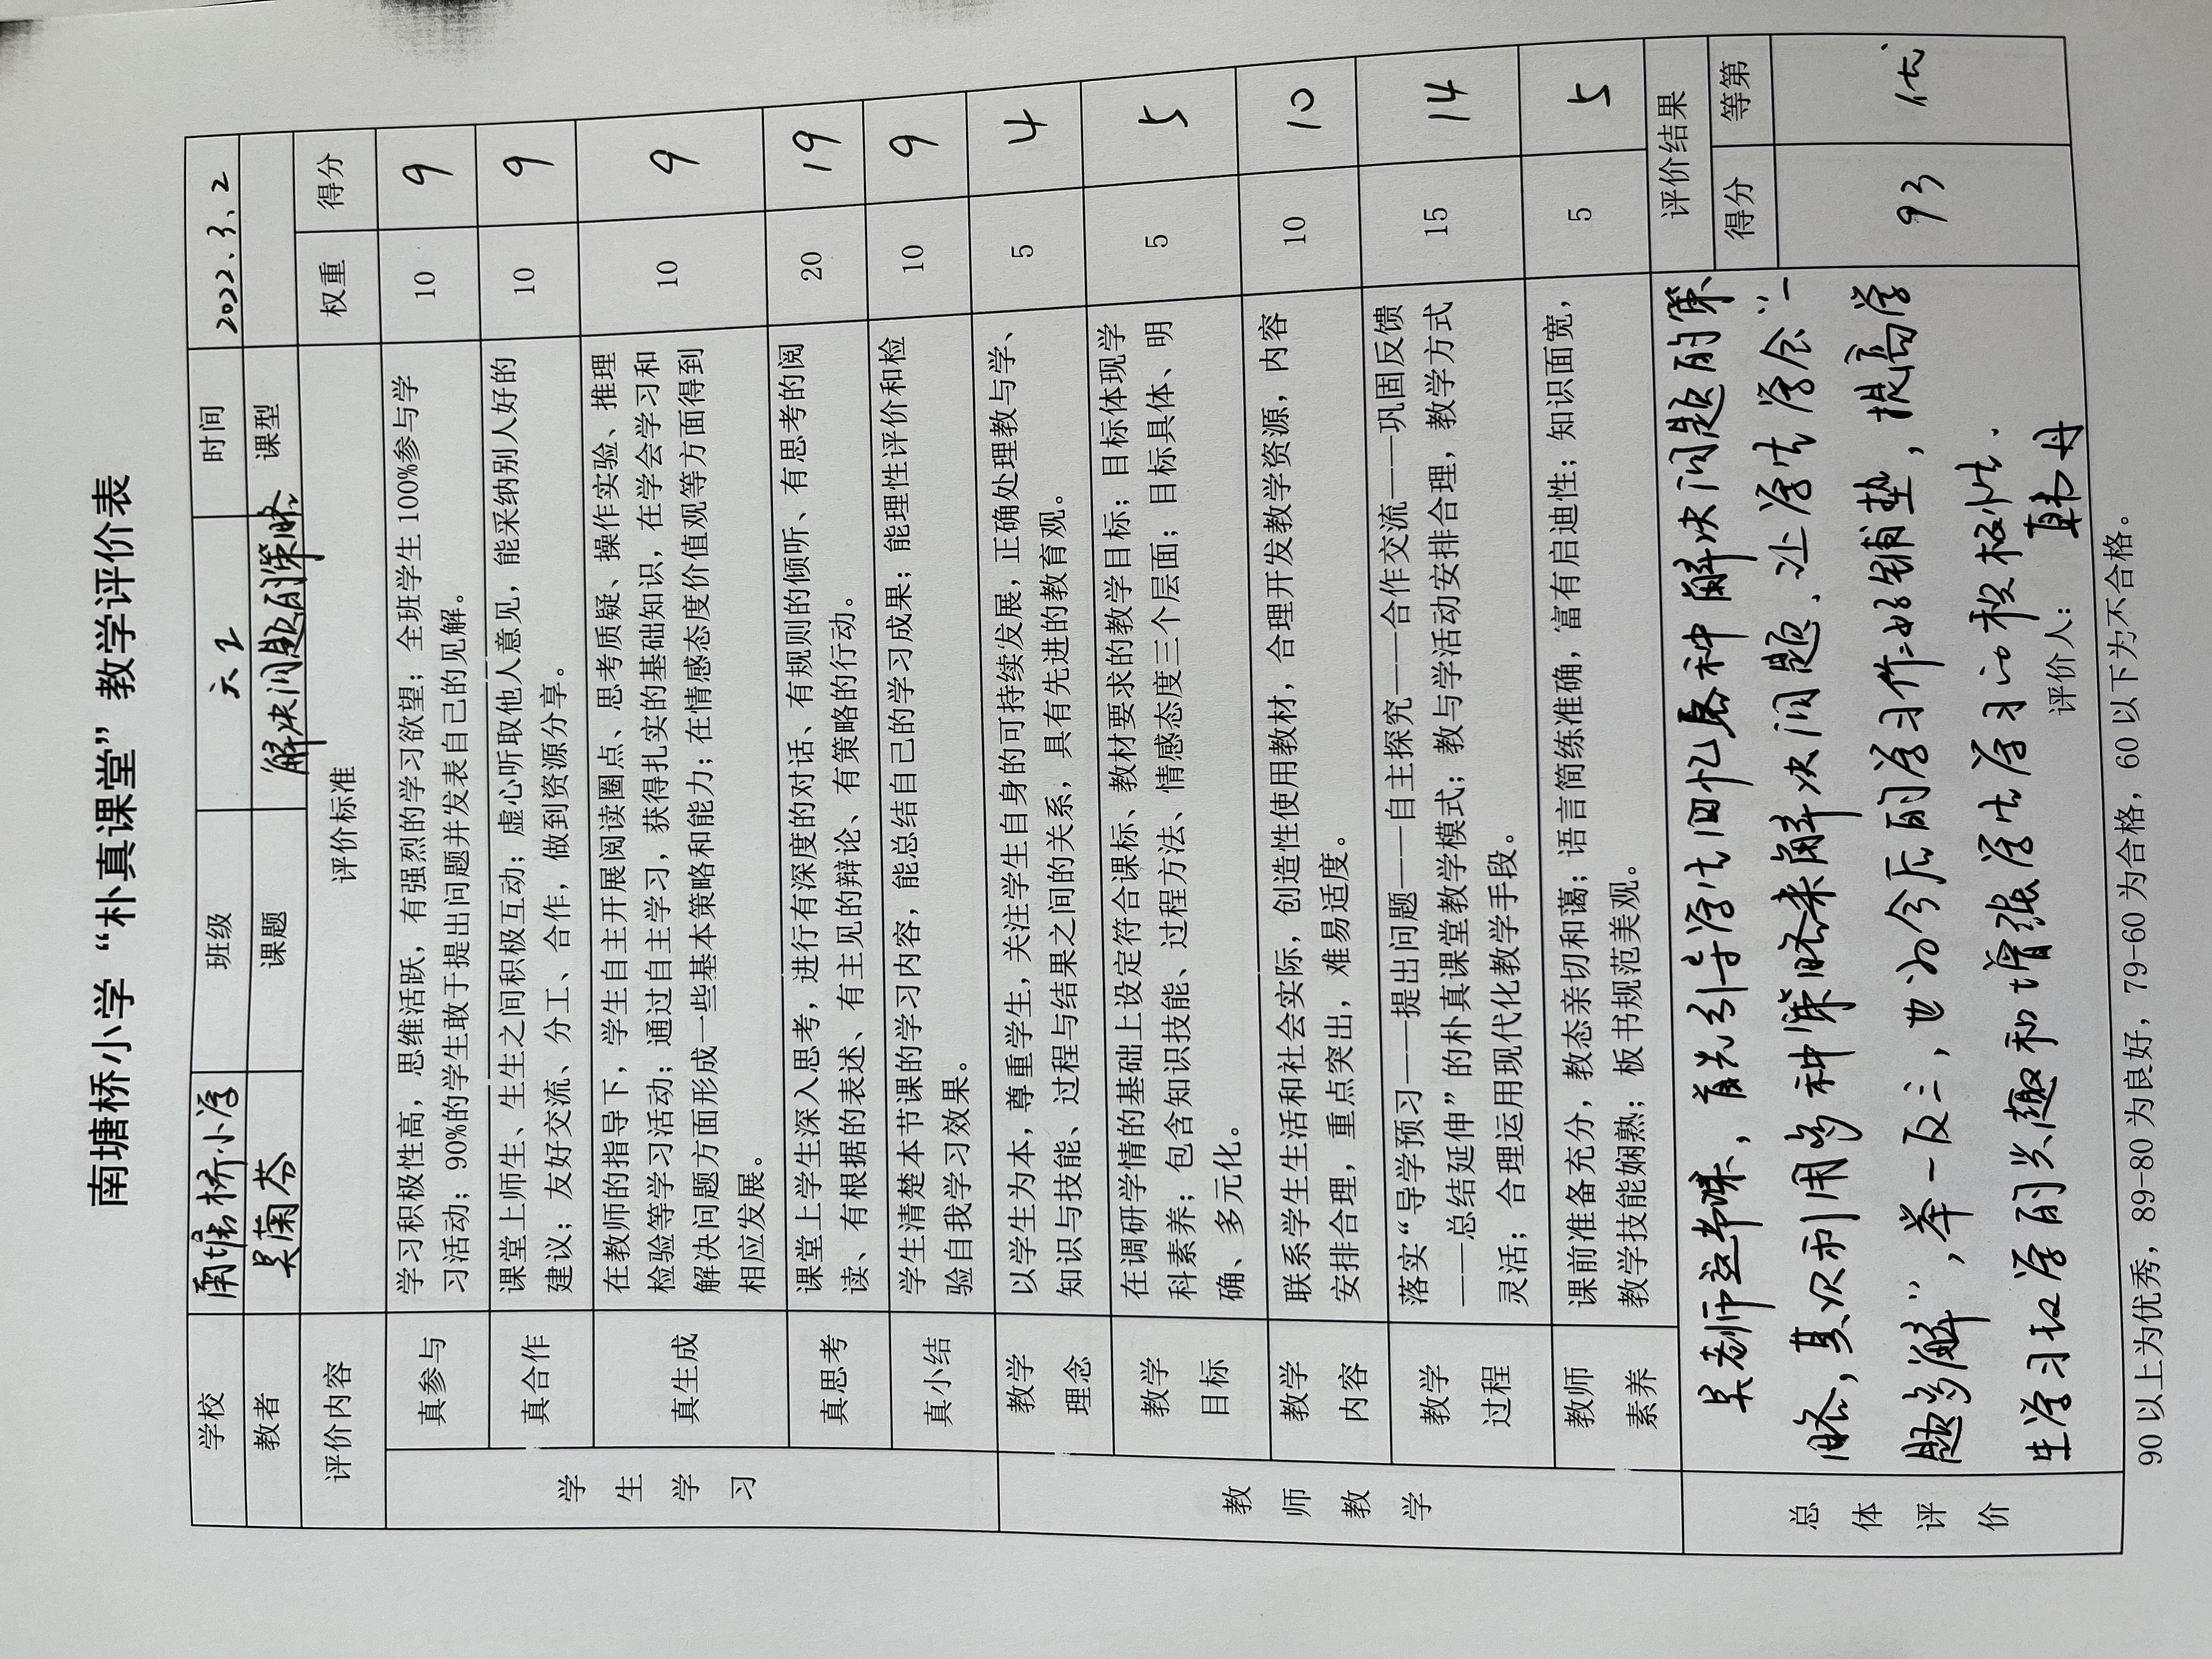 南塘桥小学“朴真课堂”教学评价表
学校 南塘桥小学 班级 六2 时间 2022.3.2
教者 吴菊芬 课题 解决问题的策略 课型
评价内容 评价标准 权重 得分
学生学习
真参与 学习积极性高，思维活跃，有强烈的学习欲望；全班学生100%参与学 10 9
习活动；90%的学生敢于提出问题并发表自己的见解。
真合作 课堂上师生、生生之间积极互动；虚心听取他人意见，能采纳别人好的 10 9
建议；友好交流、分工、合作，做到资源分享。
真生成 在教师的指导下，学生自主开展阅读圈点、思考质疑、操作实验、推理 10 9
检验等学习活动；通过自主学习，获得扎实的基础知识，在学会学习和
解决问题方面形成一些基本策略和能力；在情感态度价值观等方面得到
相应发展。
真思考 课堂上学生深入思考，进行有深度的对话、有规则的倾听、有思考的阅 20 19
读、有根据的表述、有主见的辩论、有策略的行动。
真小结 学生清楚本节课的学习内容，能总结自己的学习成果；能理性评价和检 10 9
验自我学习效果。
教师教学
教学理念 以学生为本，尊重学生，关注学生自身的可持续发展，正确处理教与学、 5 4
知识与技能、过程与结果之间的关系，具有先进的教育观。
教学目标 在调研学情的基础上设定符合课标、教材要求的教学目标；目标体现学 5 5
科素养；包含知识技能、过程方法、情感态度三个层面；目标具体、明
确、多元化。
教学内容 联系学生生活和社会实际，创造性使用教材，合理开发教学资源，内容 10 10
安排合理，重点突出，难易适度。
教学过程 落实“导学预习——提出问题——自主探究——合作交流——巩固反馈 15 14
——总结延伸”的朴真课堂教学模式；教与学活动安排合理，教学方式
灵活；合理运用现代化教学手段。
教师素养 课前准备充分，教态亲切和蔼；语言简练准确，富有启迪性；知识面宽， 5 5
教学技能娴熟；板书规范美观。
总体评价
吴老师这节课，首先引导学生回忆各种解决问题的策
略，其次利用多种策略来解决问题、让学生学会“一
题多解”，举一反三，也为今后的学习作好铺垫，提高学
生学习数学的兴趣和增强学生学习的积极性.
评价人： 韩丹
评价结果
得分 等第
93 优
90以上为优秀，89-80为良好，79-60为合格，60以下为不合格。